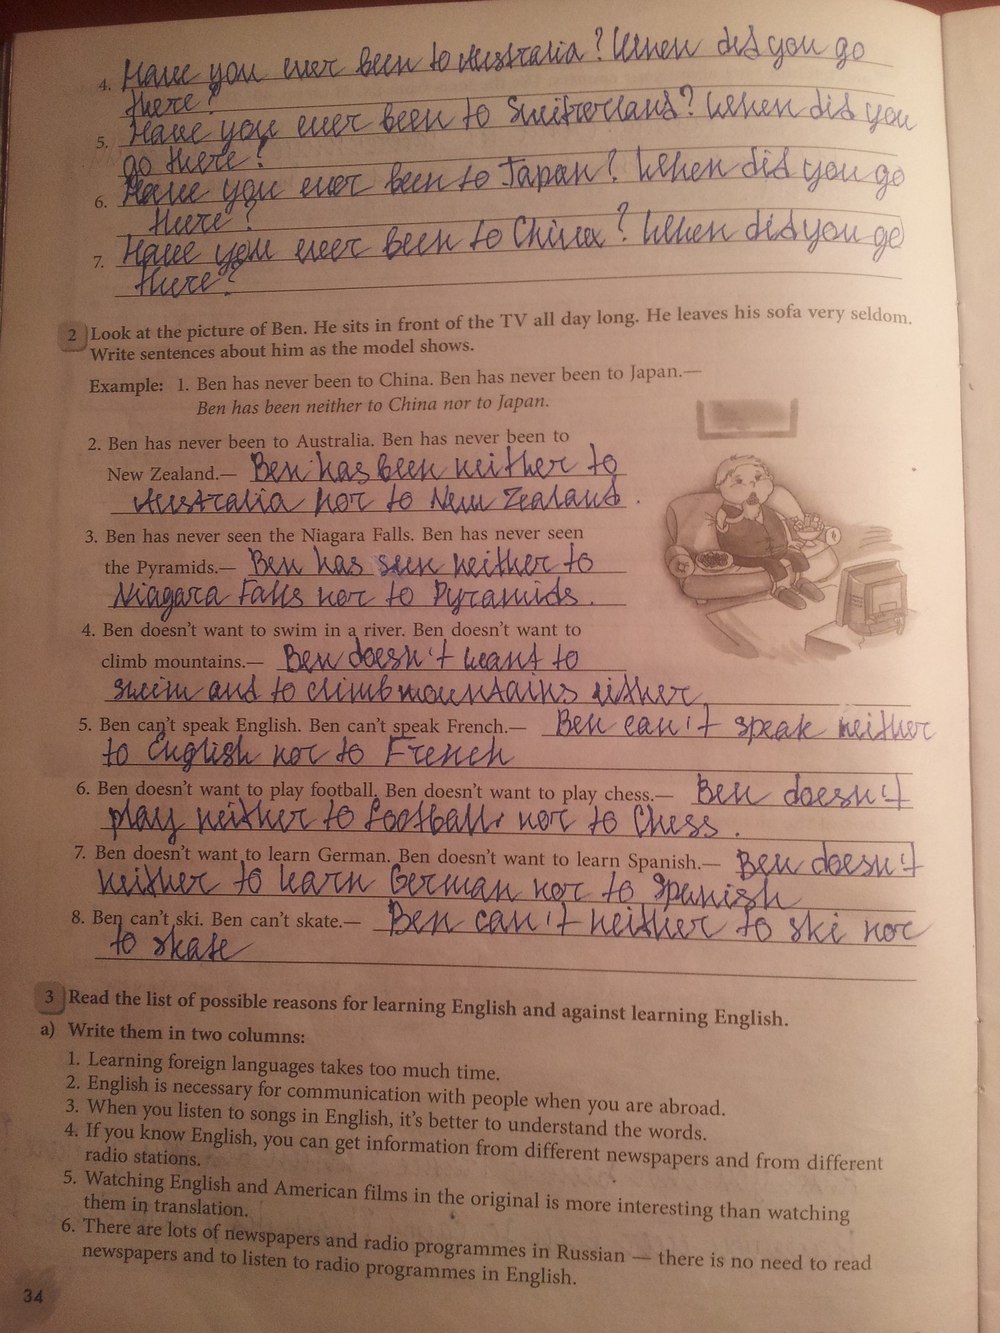 4. Have you ever been to Australia? When did you go
there?
5. Have you ever been to Switzerland? When did you
go there?
6. Have you ever been to Japan? When did you go
there?
7. Have you ever been to China? When did you go
there?
2 Look at the picture of Ben. He sits in front of the TV all day long. He leaves his sofa very seldom.
Write sentences about him as the model shows.
Example: 1. Ben has never been to China. Ben has never been to Japan.—
Ben has been neither to China nor to Japan.
2. Ben has never been to Australia. Ben has never been to
New Zealand.— Ben has been neither to
Australia nor to New Zealand.
3. Ben has never seen the Niagara Falls. Ben has never seen
the Pyramids.— Ben has seen neither to
Niagara Falls nor to Pyramids.
4. Ben doesn't want to swim in a river. Ben doesn't want to
climb mountains.— Ben doesn't want to
swim and to climb mountains either
5. Ben can't speak English. Ben can't speak French.— Ben can't speak neither
to English nor to French
6. Ben doesn't want to play football. Ben doesn't want to play chess.— Ben doesn't
play neither to football nor to Chess.
7. Ben doesn't want to learn German. Ben doesn't want to learn Spanish.— Ben doesn't
neither to learn German nor to Spanish
8. Ben can't ski. Ben can't skate.— Ben can't neither to ski nor
to skate
3 Read the list of possible reasons for learning English and against learning English.
a) Write them in two columns:
1. Learning foreign languages takes too much time.
2. English is necessary for communication with people when you are abroad.
3. When you listen to songs in English, it's better to understand the words.
4. If you know English, you can get information from different newspapers and from different
radio stations.
5. Watching English and American films in the original is more interesting than watching
them in translation.
6. There are lots of newspapers and radio programmes in Russian — there is no need to read
newspapers and to listen to radio programmes in English.
34